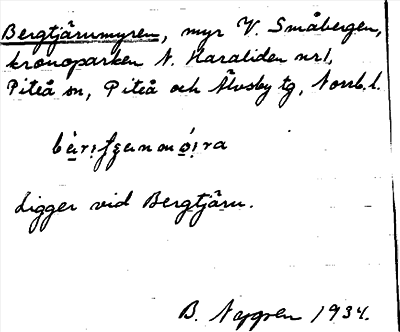 Bergtjärumyren, myr V. Småbergen,
kronoparken N. Haraliden nr 1,
Piteå sn, Piteå och Älvsby tg, Norrb. l.
Ligger vid Bergtjäru.
B. Nygren 1934.